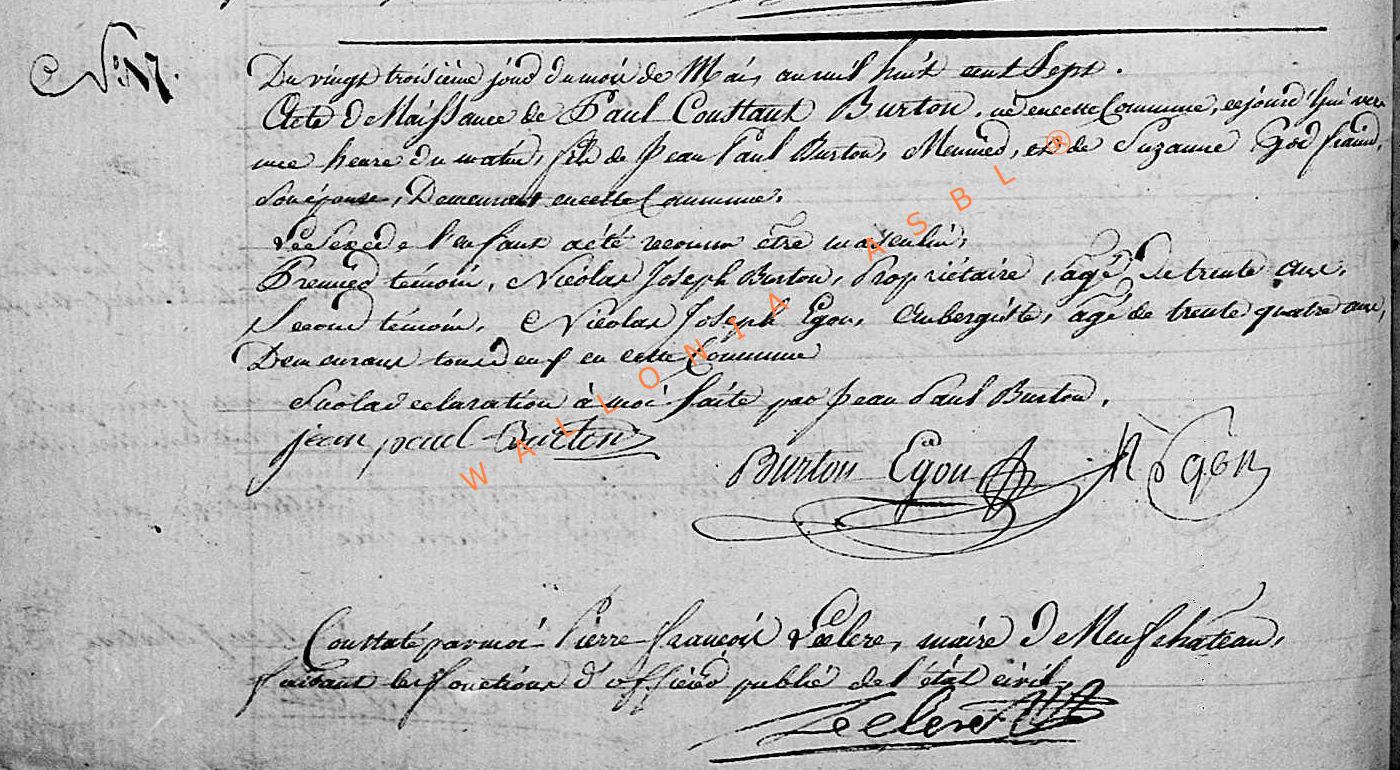 N.° 17.
Du vingt troisième jour du mois de Mai, an mil huit cent Sept.
Acte de Naissance de Paul Constant Burton, né en cette Commune, cejourd'hui vers
une heure du matin, fils de Jean Paul Burton, Meunier, et de Suzanne Godfraind,
Son épouse, Demeurant en cette Commune.
Le Sexe de l'enfant a été reconnu être masculin,
Premier témoin, Nicolas Joseph Burton, Propriétaire, agé de trente ans,
Second témoin, Nicolas Joseph Egon, Aubergiste, agé de trente quatre ans,
Demeurans tous deux en cette Commune
Sur la déclaration à moi faite par Jean Paul Burton.
jean paul Burton
Burton Egon N J Egon
Constaté par moi Pierre François Leclere, maire de Neufchateau,
faisant les fonctions d'officier public de l'état civil,
Leclere
WALLONIA ASBL ®